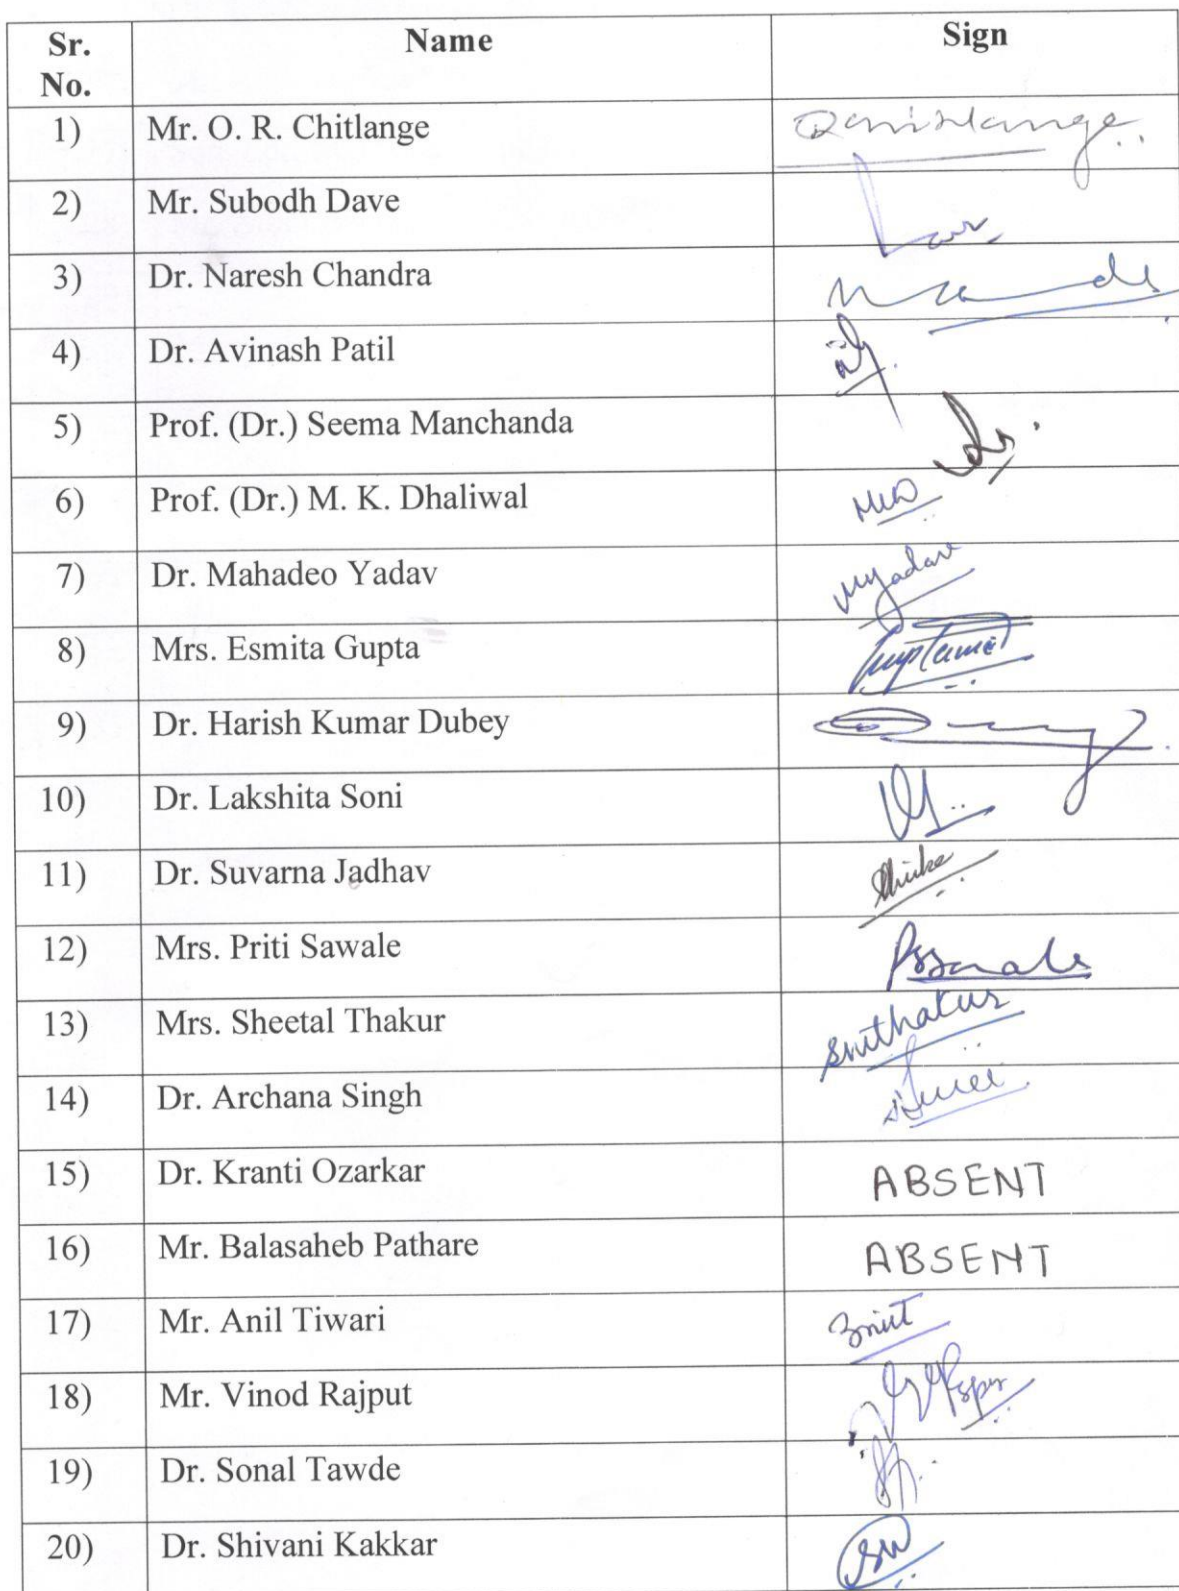 Sr. No. Name Sign
1) Mr. O. R. Chitlange
2) Mr. Subodh Dave
3) Dr. Naresh Chandra
4) Dr. Avinash Patil
5) Prof. (Dr.) Seema Manchanda
6) Prof. (Dr.) M. K. Dhaliwal
7) Dr. Mahadeo Yadav
8) Mrs. Esmita Gupta
9) Dr. Harish Kumar Dubey
10) Dr. Lakshita Soni
11) Dr. Suvarna Jadhav
12) Mrs. Priti Sawale
13) Mrs. Sheetal Thakur
14) Dr. Archana Singh
15) Dr. Kranti Ozarkar ABSENT
16) Mr. Balasaheb Pathare ABSENT
17) Mr. Anil Tiwari
18) Mr. Vinod Rajput
19) Dr. Sonal Tawde
20) Dr. Shivani Kakkar